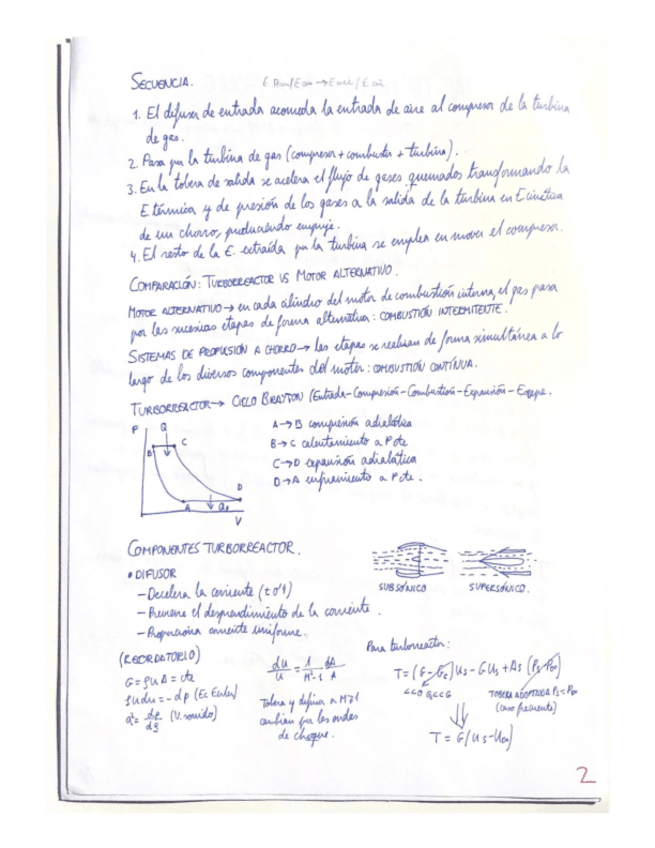 SECUENCIA.
1. El difusor de entrada acomoda la entrada de aire al compresor de la turbina
de gas.
2. Pasa por la turbina de gas (compresor + combustor + turbina).
3. En la tobera de salida se acelera el flujo de gases quemados transformando la
E térmica y de presión de los gases a la salida de la turbina en E cinética
de un chorro, produciendo empuje.
4. El resto de la E. extraída por la turbina se emplea en mover el compresor.
COMPARACIÓN: TURBORREACTOR VS MOTOR ALTERNATIVO.
MOTOR ALTERNATIVO → en cada cilindro del motor de combustión interna, el gas pasa
por las sucesivas etapas de forma alternativa: COMBUSTIÓN INTERMITENTE.
SISTEMAS DE PROPULSIÓN A CHORRO → las etapas se realizan de forma simultánea a lo
largo de los diversos componentes del motor: COMBUSTIÓN CONTÍNUA.
TURBORREACTOR → CICLO BRAYTON (Entrada - Compresión - Combustión - Expansión - Escape.
P
Q
B
C
A
D
V
A → B compresión adiabática
B → C calentamiento a P cte
C → D expansión adiabática
D → A enfriamiento a P cte.
COMPONENTES TURBORREACTOR.
• DIFUSOR
- Decelera la corriente
- Previene el desprendimiento de la corriente.
- Proporciona corriente uniforme.
SUBSÓNICO
SUPERSÓNICO.
(RECORDATORIO)
G = ρuA = cte
ρudu = -dp (Ec Euler)
a² = dp/dρ (V. sonido)
du/u = 1/(M²-1) dA/A
Tobera y difusor a M>1
cambian por las ondas
de choque.
Para turborreactor:
T = (G - Gc) us - G u∞ + As (Ps - P∞)
TOBERA ADAPTADA Ps = P∞
(caso frecuente)
T = G(us - u∞)
2